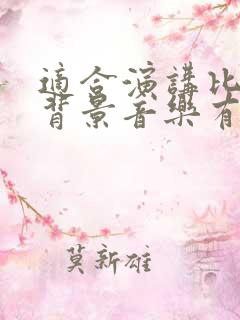 適合演講比
背景音樂有
莫新雄